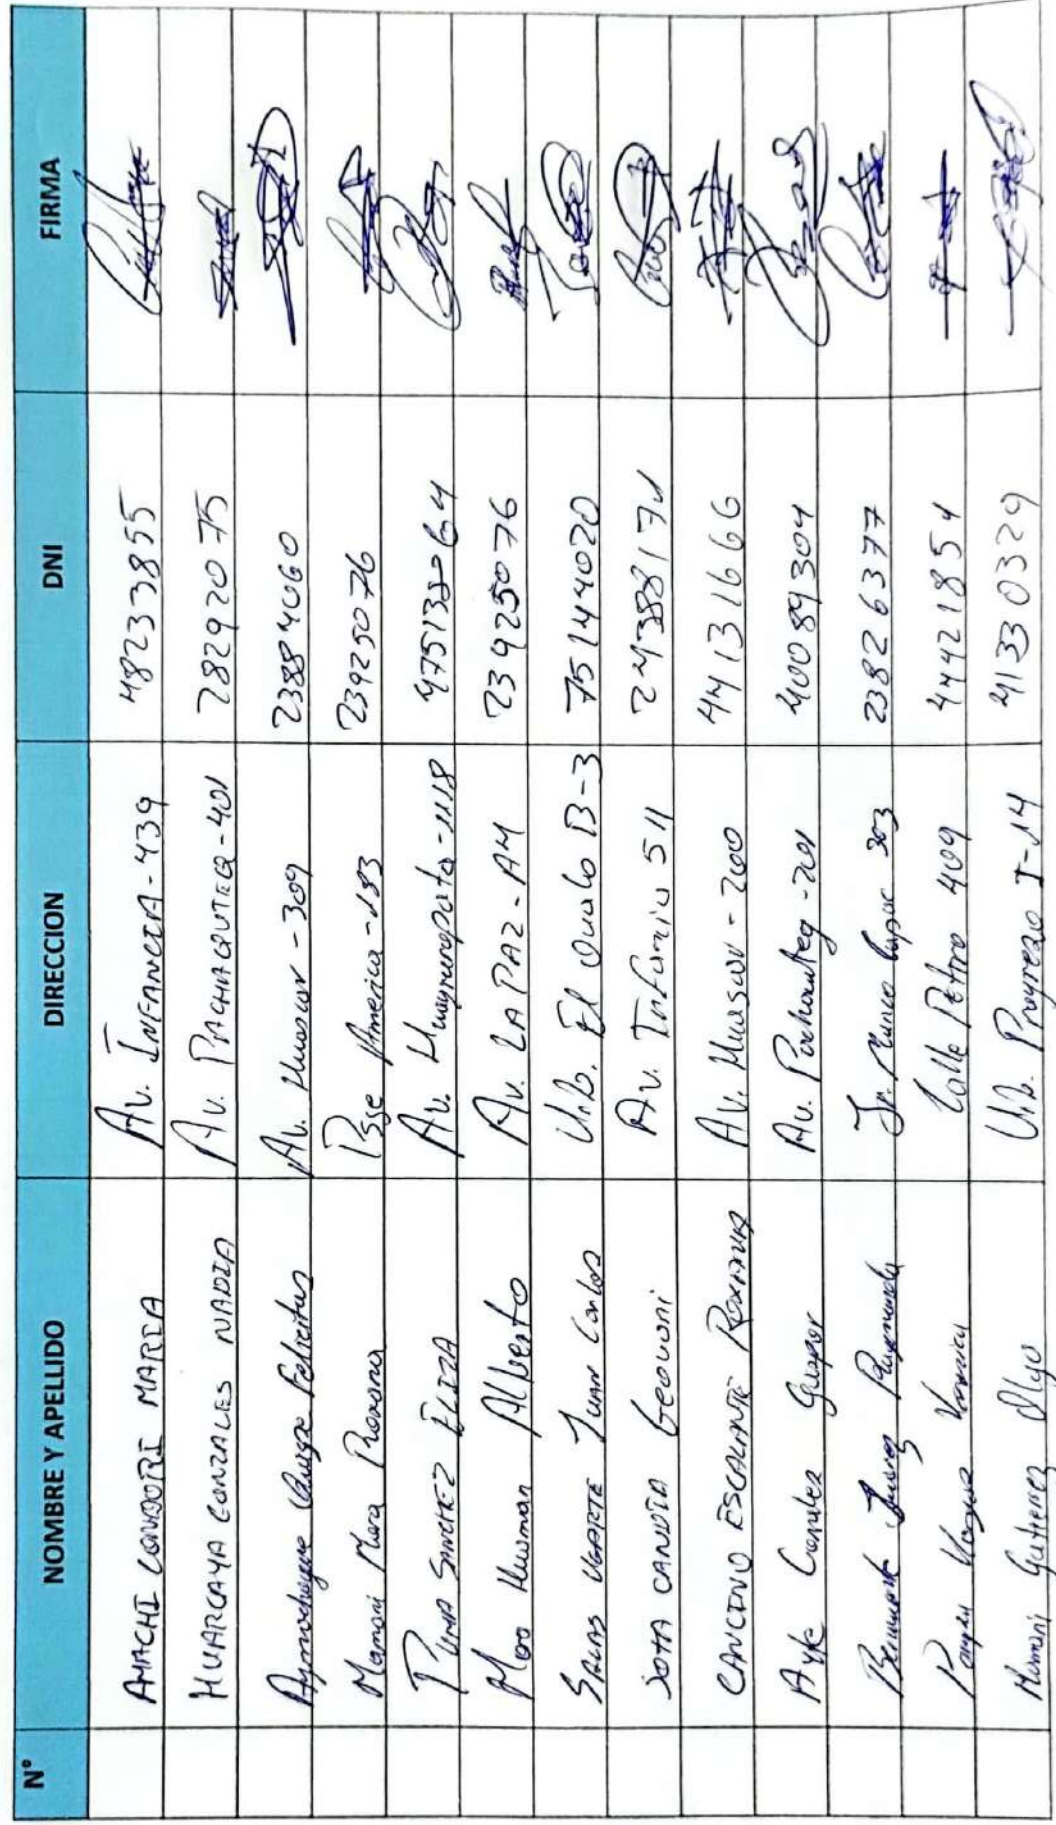 N° NOMBRE Y APELLIDO DIRECCION DNI FIRMA
AMACHI CONDORI MARIA Av. INFANCIA - 439 48233855
HUARCAYA GONZALES NADIA Av. PACHACUTEQ - 401 28292075
Felicitas Av. Huascar - 309 23884060
Mamani Mora Roxana Pse America - 183 23925076
PUMA SANCHEZ ELIZA Av. Huayruropata - 1118
Moro Huaman Alberto Av. LA PAZ - A4 23925076
SALAS UGARTE JUAN Carlos Urb. El Ovalo B-3 75144020
SOTTA CANDIA Geovani Av. Infancia 511
CANCINO ESCALANTE ROXANA Av. Huascar - 200 44131666
Gaspar Av. Pachacuteq - 201 40089304
Jr. Manco Capac 303 23826377
Calle Petro 409 44421854
Mamani Gutierrez Urb. Progreso I-14 41330329